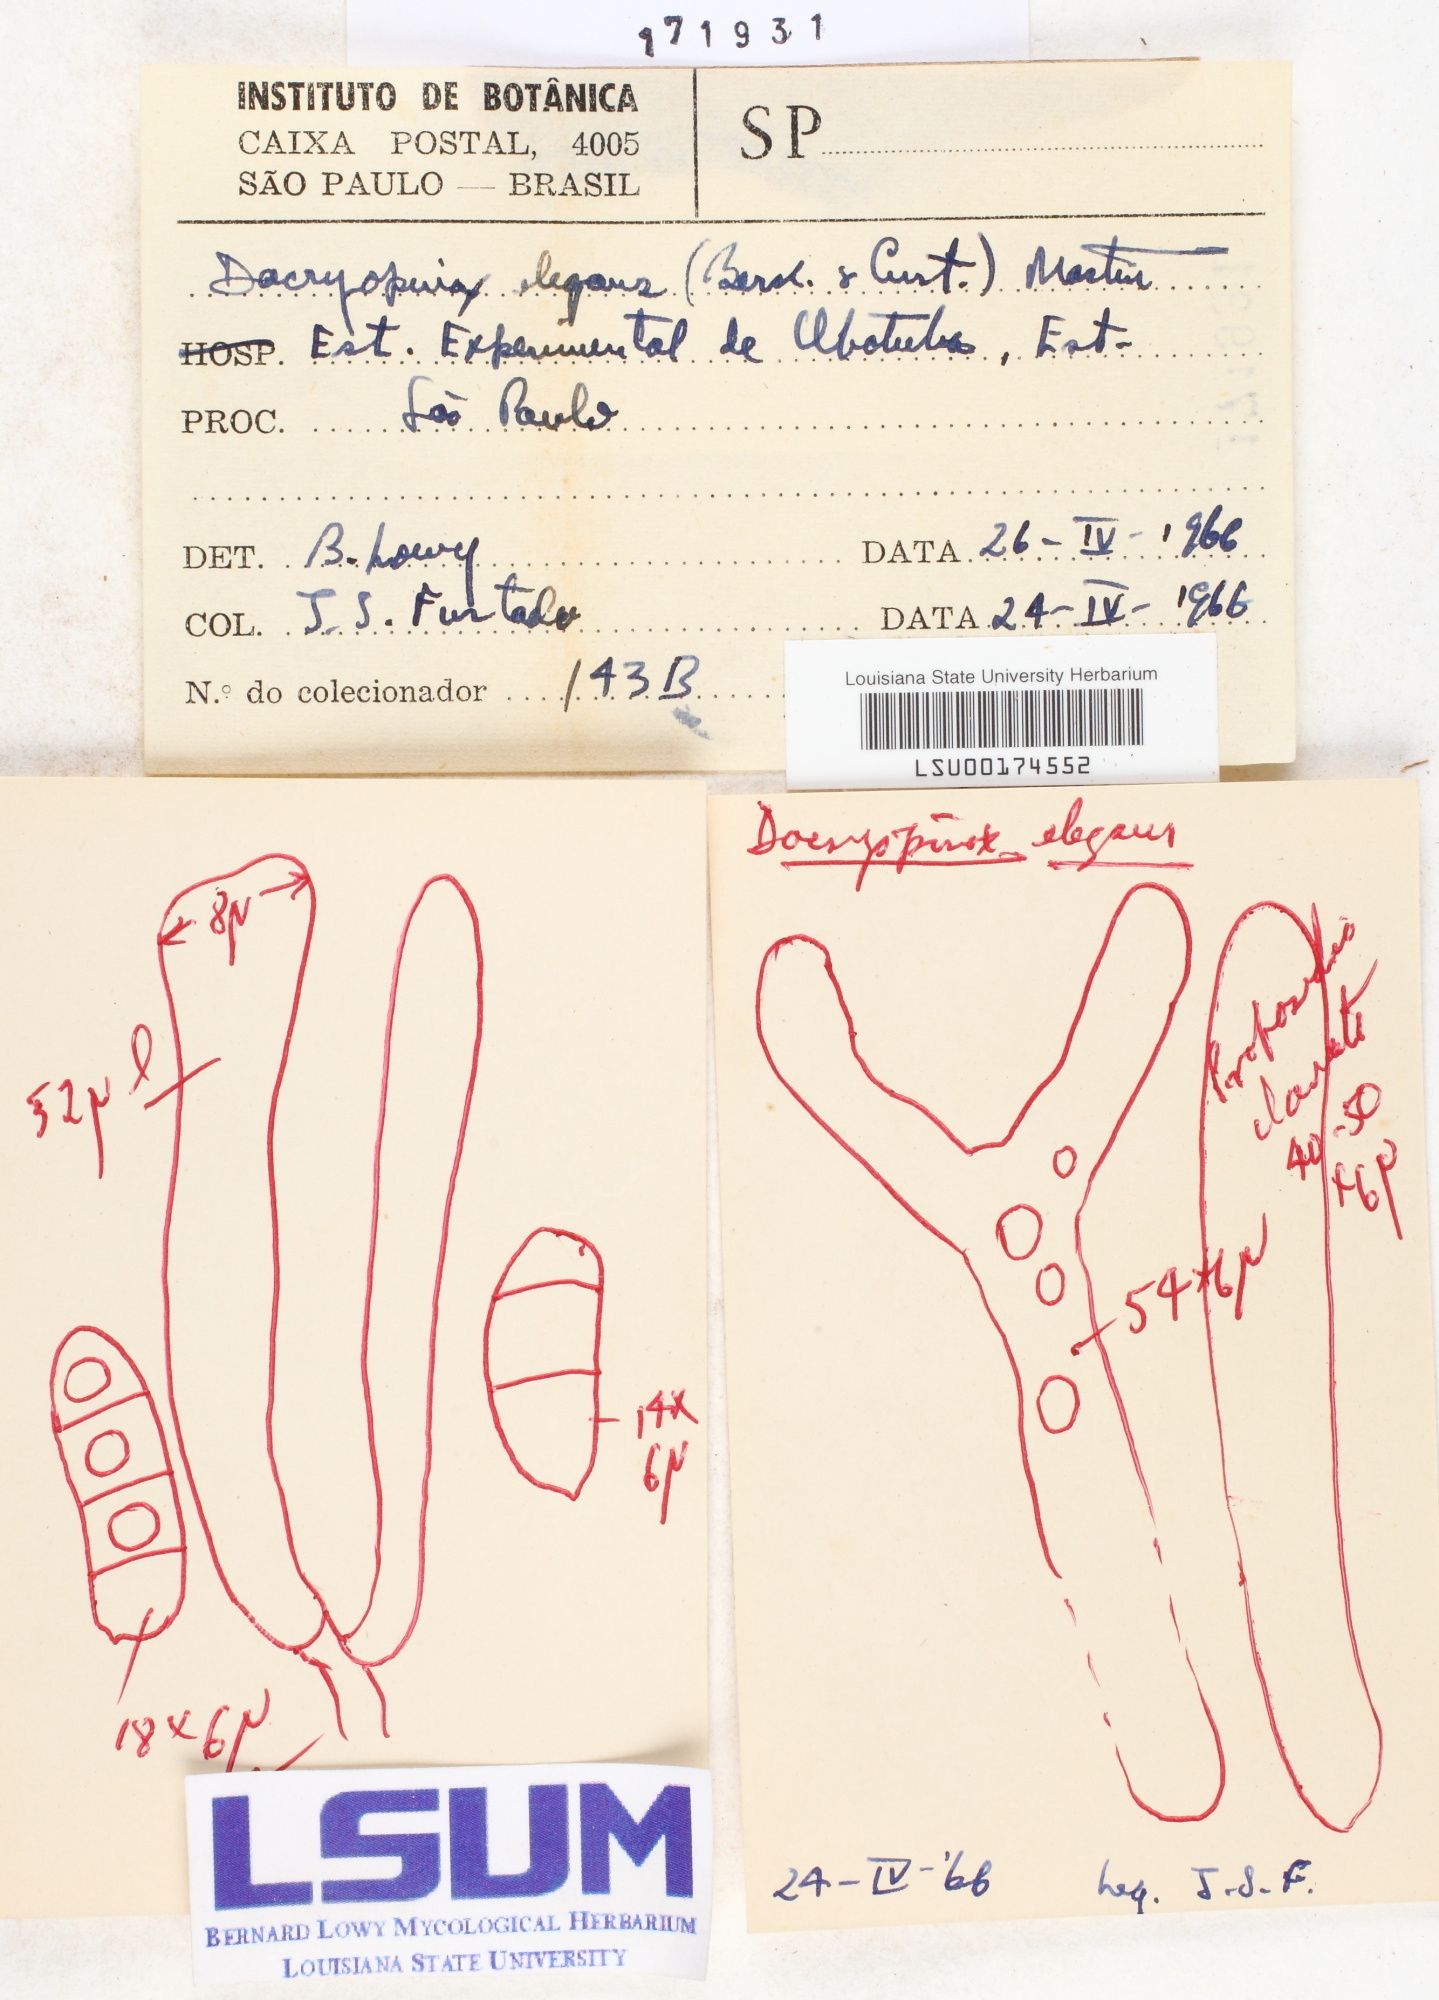 171931
INSTITUTO DE BOTÂNICA
CAIXA POSTAL, 4005
SÃO PAULO — BRASIL
SP
Dacryopinax elegans (Berk. & Curt.) Martin
HOSP. Est. Experimental de Ubatuba, Est.
PROC. São Paulo
DET. B. Lowy DATA 26-IV-1966
COL. J.S. Furtado DATA 24-IV-1966
N.º do colecionador 143B
Louisiana State University Herbarium
LSU00174552
8μ
52μ l
14x
6μ
18x6μ
Dacryopinax elegans
Probasidia
clavate
40-50
x6μ
54x6μ
24-IV-'66 Leg. J.S.F.
LSUM
BERNARD LOWY MYCOLOGICAL HERBARIUM
LOUISIANA STATE UNIVERSITY